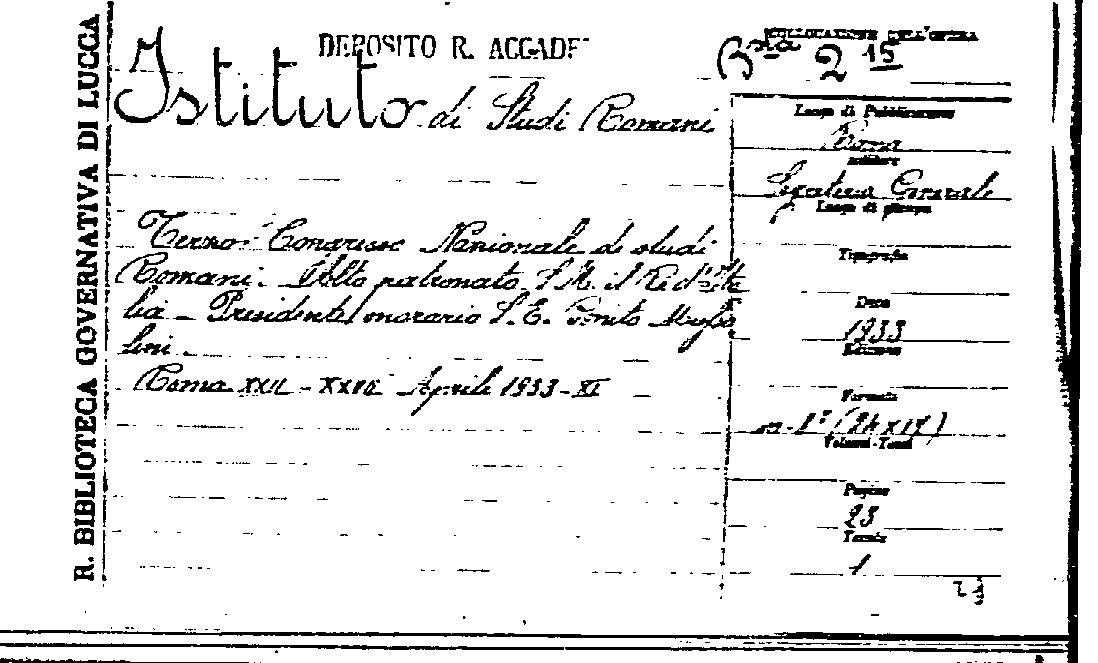 R. BIBLIOTECA GOVERNATIVA DI LUCCA
DEPOSITO R. ACCADE
COLLOCAZIONE DELL'OPERA
Bta 2 15
Istituto di Studi Romani
Terzo Congresso Nazionale di studi
Romani. - Alto patronato S. M. il Re d'Ita
lia - Presidente onorario S. E. Benito Musso
lini.
Roma XXII - XXVII Aprile 1933 - XI
Luogo di Pubblicazione
Roma
Editore
Segreteria Generale
Luogo di stampa
Tipografia
Data
1933
Edizione
Formato
in-8° (24x17)
Volumi-Tomi
Pagine
23
Tavole
1